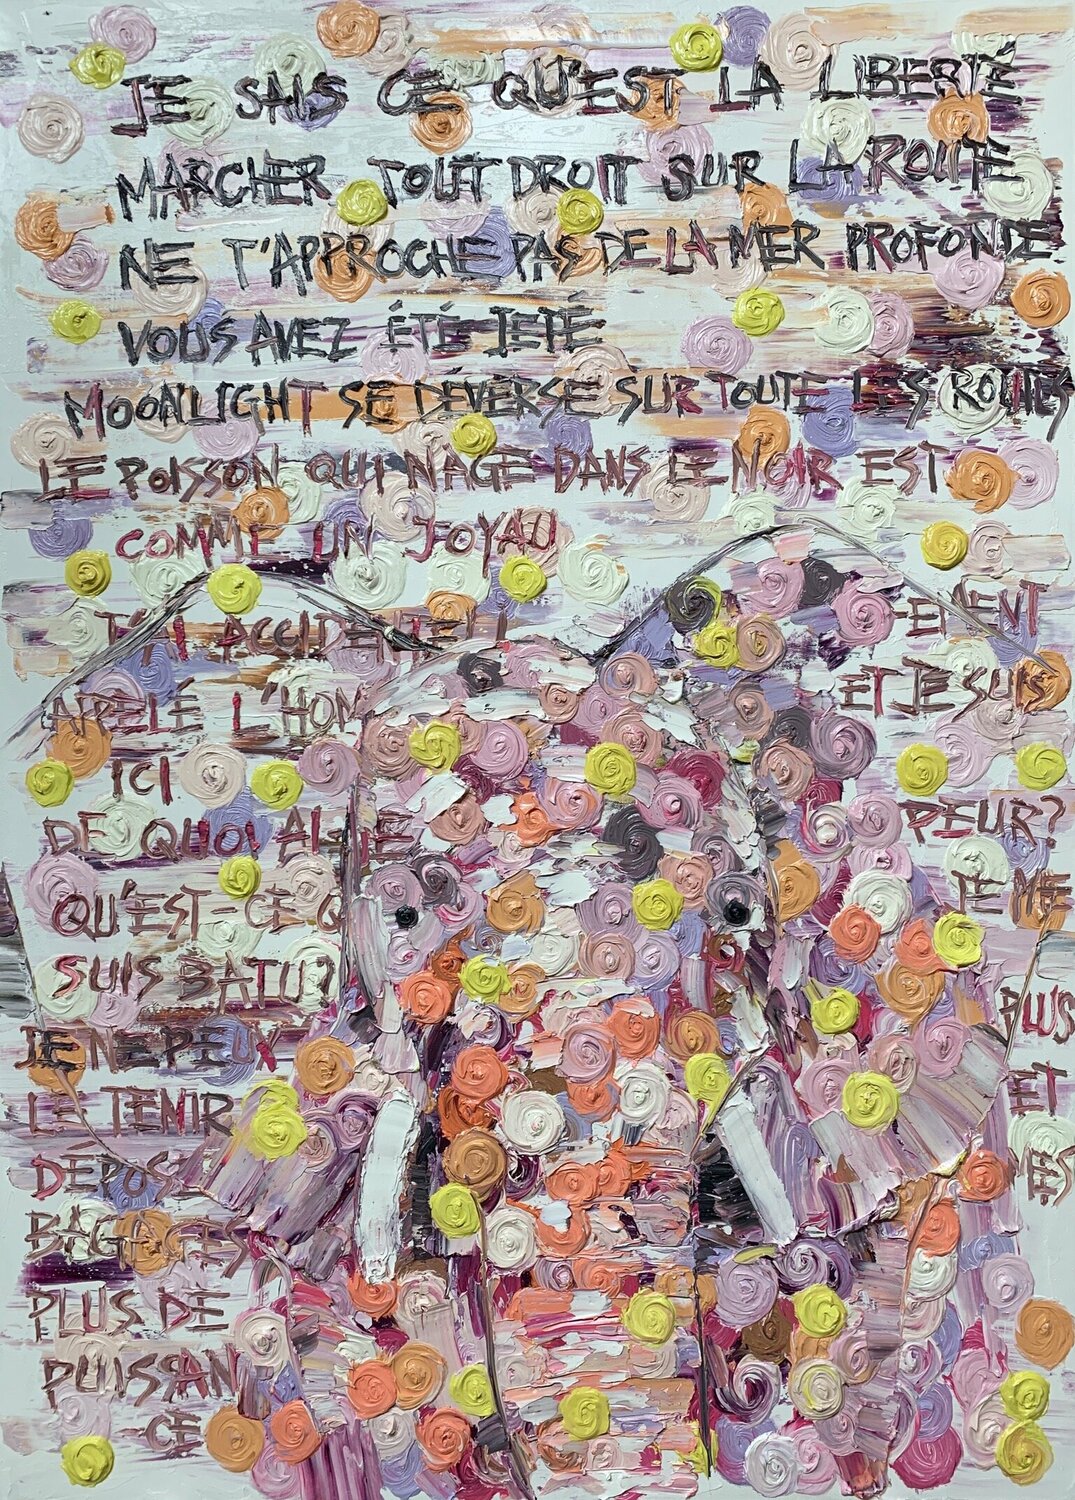 JE SAIS CE QU'EST LA LIBERTÉ
MARCHER TOUT DROIT SUR LA ROUTE
NE T'APPROCHE PAS DE LA MER PROFONDE
VOUS AVEZ ÉTÉ JETÉ
MOONLIGHT SE DÉVERSE SUR TOUTE LES ROUTES
LE POISSON QUI NAGE DANS LE NOIR EST
COMME UN JOYAU
J'AI ACCIDENTELL EMENT
APPELÉ L'HOM ET JE SUIS
ICI
DE QUOI AI-JE PEUR?
QU'EST-CE Q JE ME
SUIS BATU?
JE NE PEUX PLUS
LE TENIR ET
DÉPOSE
BAGAGES
PLUS DE
PUISSAN
-CE